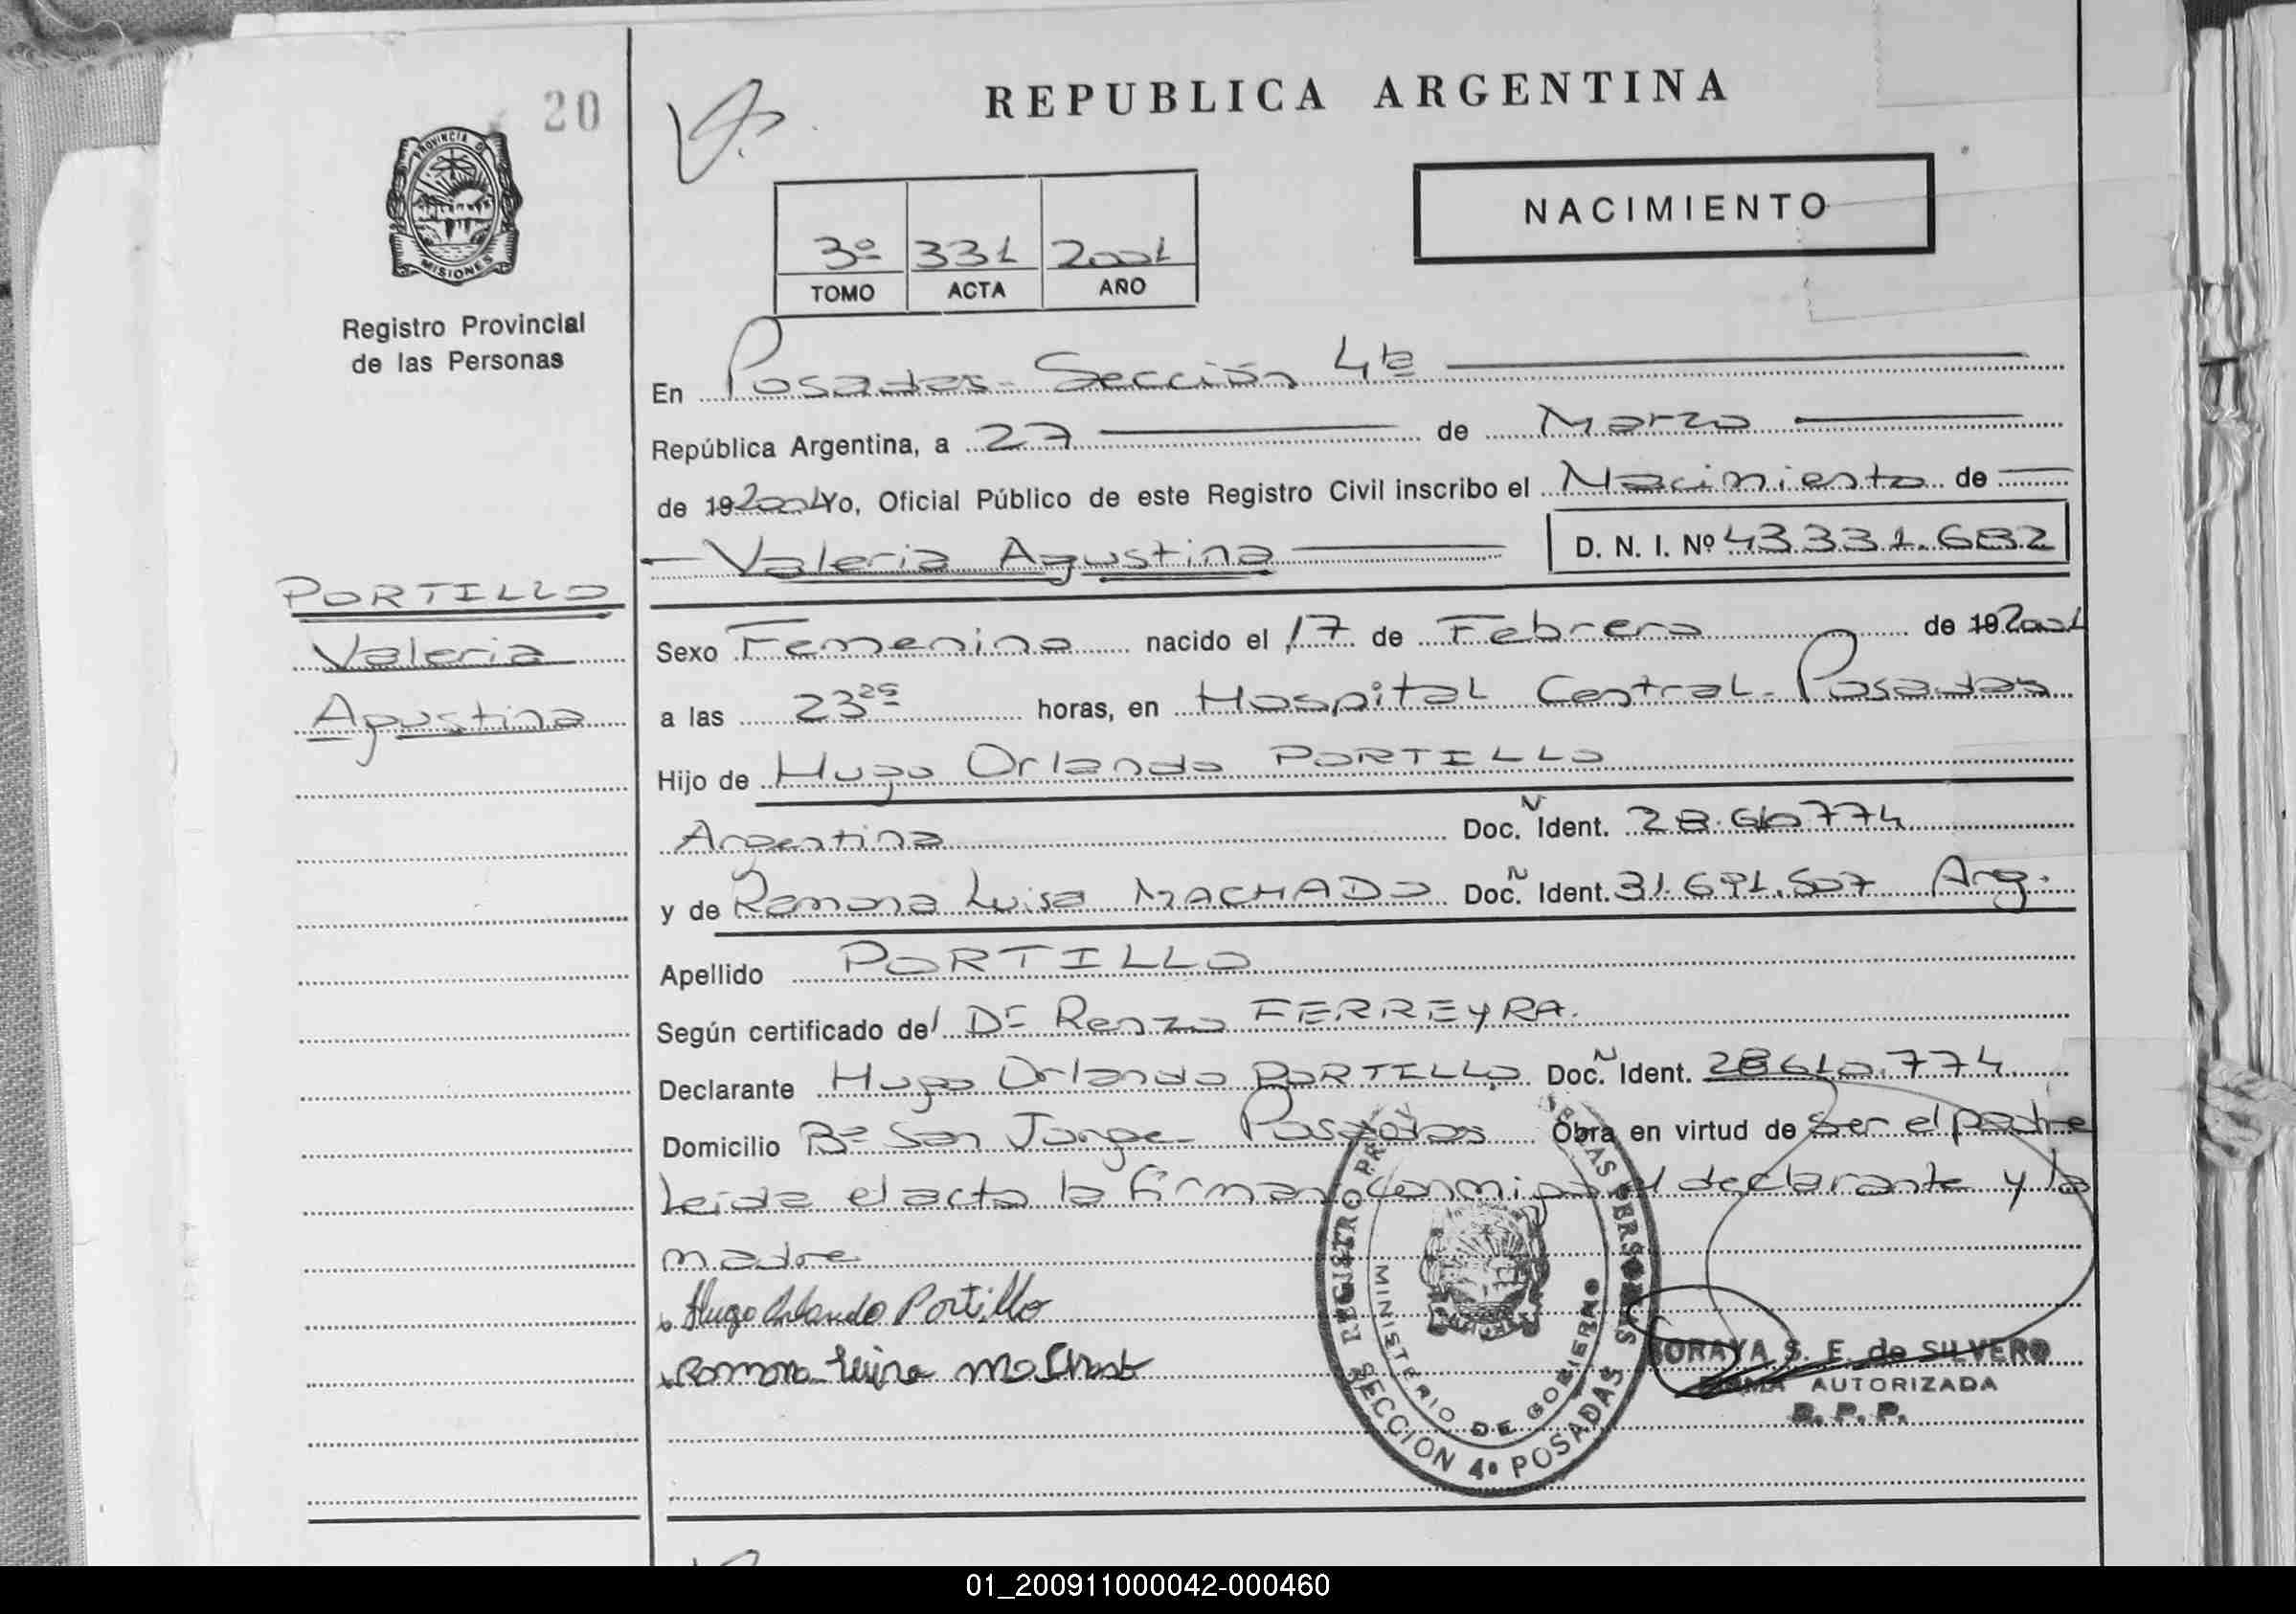 20
REPUBLICA ARGENTINA
PROVINCIA D
MISIONES
Registro Provincial
de las Personas
NACIMIENTO
3º 331 2001
TOMO ACTA AÑO
En Posadas - Sección 4ta
República Argentina, a 27 de Marzo
de 19 2001 Yo, Oficial Público de este Registro Civil inscribo el Nacimiento de
Valeria Agustina D. N. I. Nº 43.331.682
PORTILLO
Valeria
Agustina
Sexo Femenino nacido el 17 de Febrero de 19 2001
a las 23 25 horas, en Hospital Central - Posadas
Hijo de Hugo Orlando PORTILLO
Argentina Doc. N Ident. 28.610774
y de Ramona Luisa MACHADO Doc. N Ident. 31.691.507 Arg.
Apellido PORTILLO
Según certificado del Dr Renzo FERREYRA.
Declarante Hugo Orlando PORTILLO Doc. N Ident. 28610.774
Domicilio Bº San Jorge - Posadas Obra en virtud de ser el padre
Leida el acta la firman conmigo el declarante y la
madre
Hugo Orlando Portillo
Ramona Luisa Machado
REGISTRO PR AS PERSONAS
MINISTERIO DE GOBIERNO
SECCION 4º POSADAS
SORAYA S. E. de SILVERO
FIRMA AUTORIZADA
R.P.P.
01_200911000042-000460